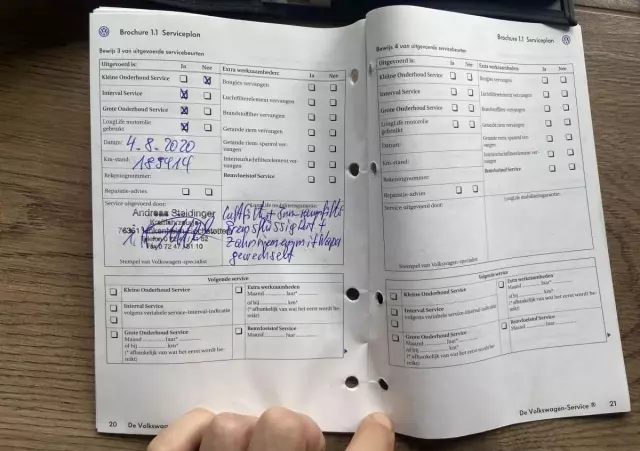 Brochure 1.1 Serviceplan
Bewijs 3 van uitgevoerde servicebeurten
Uitgevoerd is: Ja Nee
Kleine Onderhoud Service
Interval Service
Grote Onderhoud Service
LongLife motorolie
gebruikt
Datum: 4.8.2020
Km-stand: 189914
Rekeningnummer:
Reparatie-advies
Service uitgevoerd door:
Andreas Steidinger
Stempel van Volkswagen-specialist
Extra werkzaamheden: Ja Nee
Bougies vervangen
Luchtfilterelement vervangen
Brandstoffilter vervangen
Getande riem vervangen
Getande riem-spanrol ver-
vangen
Interieurluchtfilterelement ver-
vangen
Remvloeistof Service
LongLife mobiliteitsgarantie:
Bremsflüssigkeit
Zahnriemen mit Wapu
gewechselt
Volgende service
Kleine Onderhoud Service
Interval Service
volgens variabele service-interval-indicatie
Grote Onderhoud Service
Maand Jaar*
of bij km*
(* afhankelijk van wat het eerst wordt be-
reikt)
Extra werkzaamheden
Maand Jaar*
of bij km*
(* afhankelijk van wat het eerst wordt be-
reikt)
Remvloeistof Service
Maand Jaar
20 De Volkswagen
Brochure 1.1 Serviceplan
Bewijs 4 van uitgevoerde servicebeurten
Uitgevoerd is: Ja Nee
Kleine Onderhoud Service
Interval Service
Grote Onderhoud Service
LongLife motorolie
gebruikt
Datum:
Km-stand:
Rekeningnummer:
Reparatie-advies
Service uitgevoerd door:
Stempel van Volkswagen-specialist
Extra werkzaamheden: Ja Nee
Bougies vervangen
Luchtfilterelement vervangen
Brandstoffilter vervangen
Getande riem vervangen
Getande riem-spanrol ver-
vangen
Interieurluchtfilterelement ver-
vangen
Remvloeistof Service
LongLife mobiliteitsgarantie:
Volgende service
Kleine Onderhoud Service
Interval Service
volgens variabele service-interval-indicatie
Grote Onderhoud Service
Maand Jaar*
of bij km*
(* afhankelijk van wat het eerst wordt be-
reikt)
Extra werkzaamheden
Maand Jaar*
of bij km*
(* afhankelijk van wat het eerst wordt be-
reikt)
Remvloeistof Service
Maand Jaar
De Volkswagen-Service ® 21